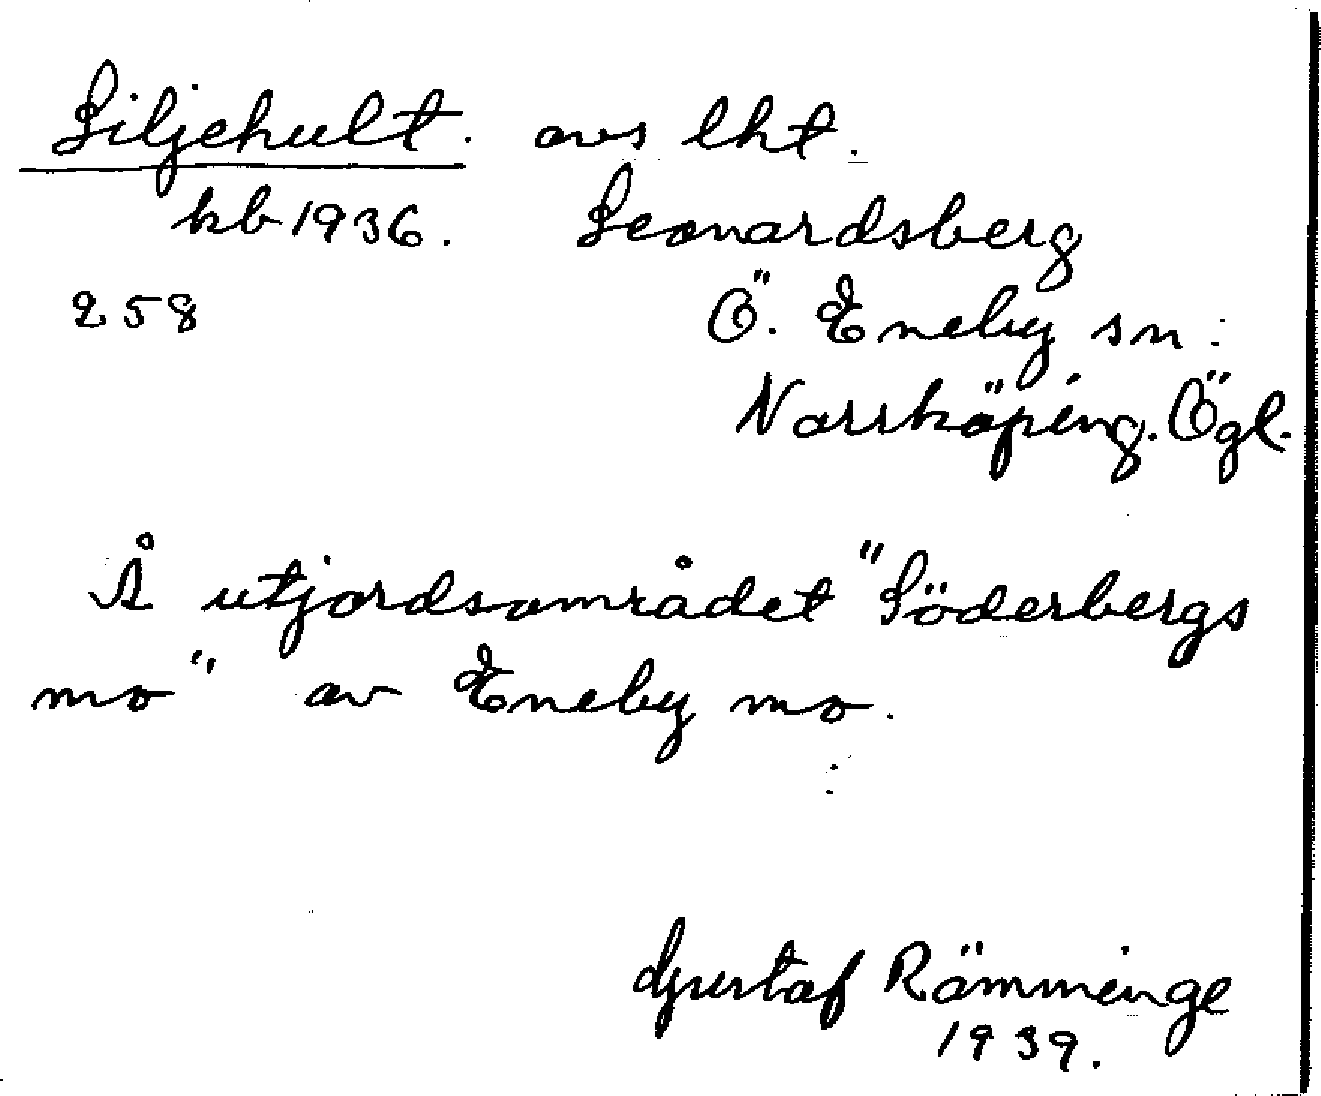 Liljehult. avs lht.
kb 1936. Leonardsberg
258 Ö. Eneby sn:
Norrköping. Ögl.
Å utjordsområdet "Söderbergs
mo" av Eneby mo.
Gustaf Rämminge
1939.